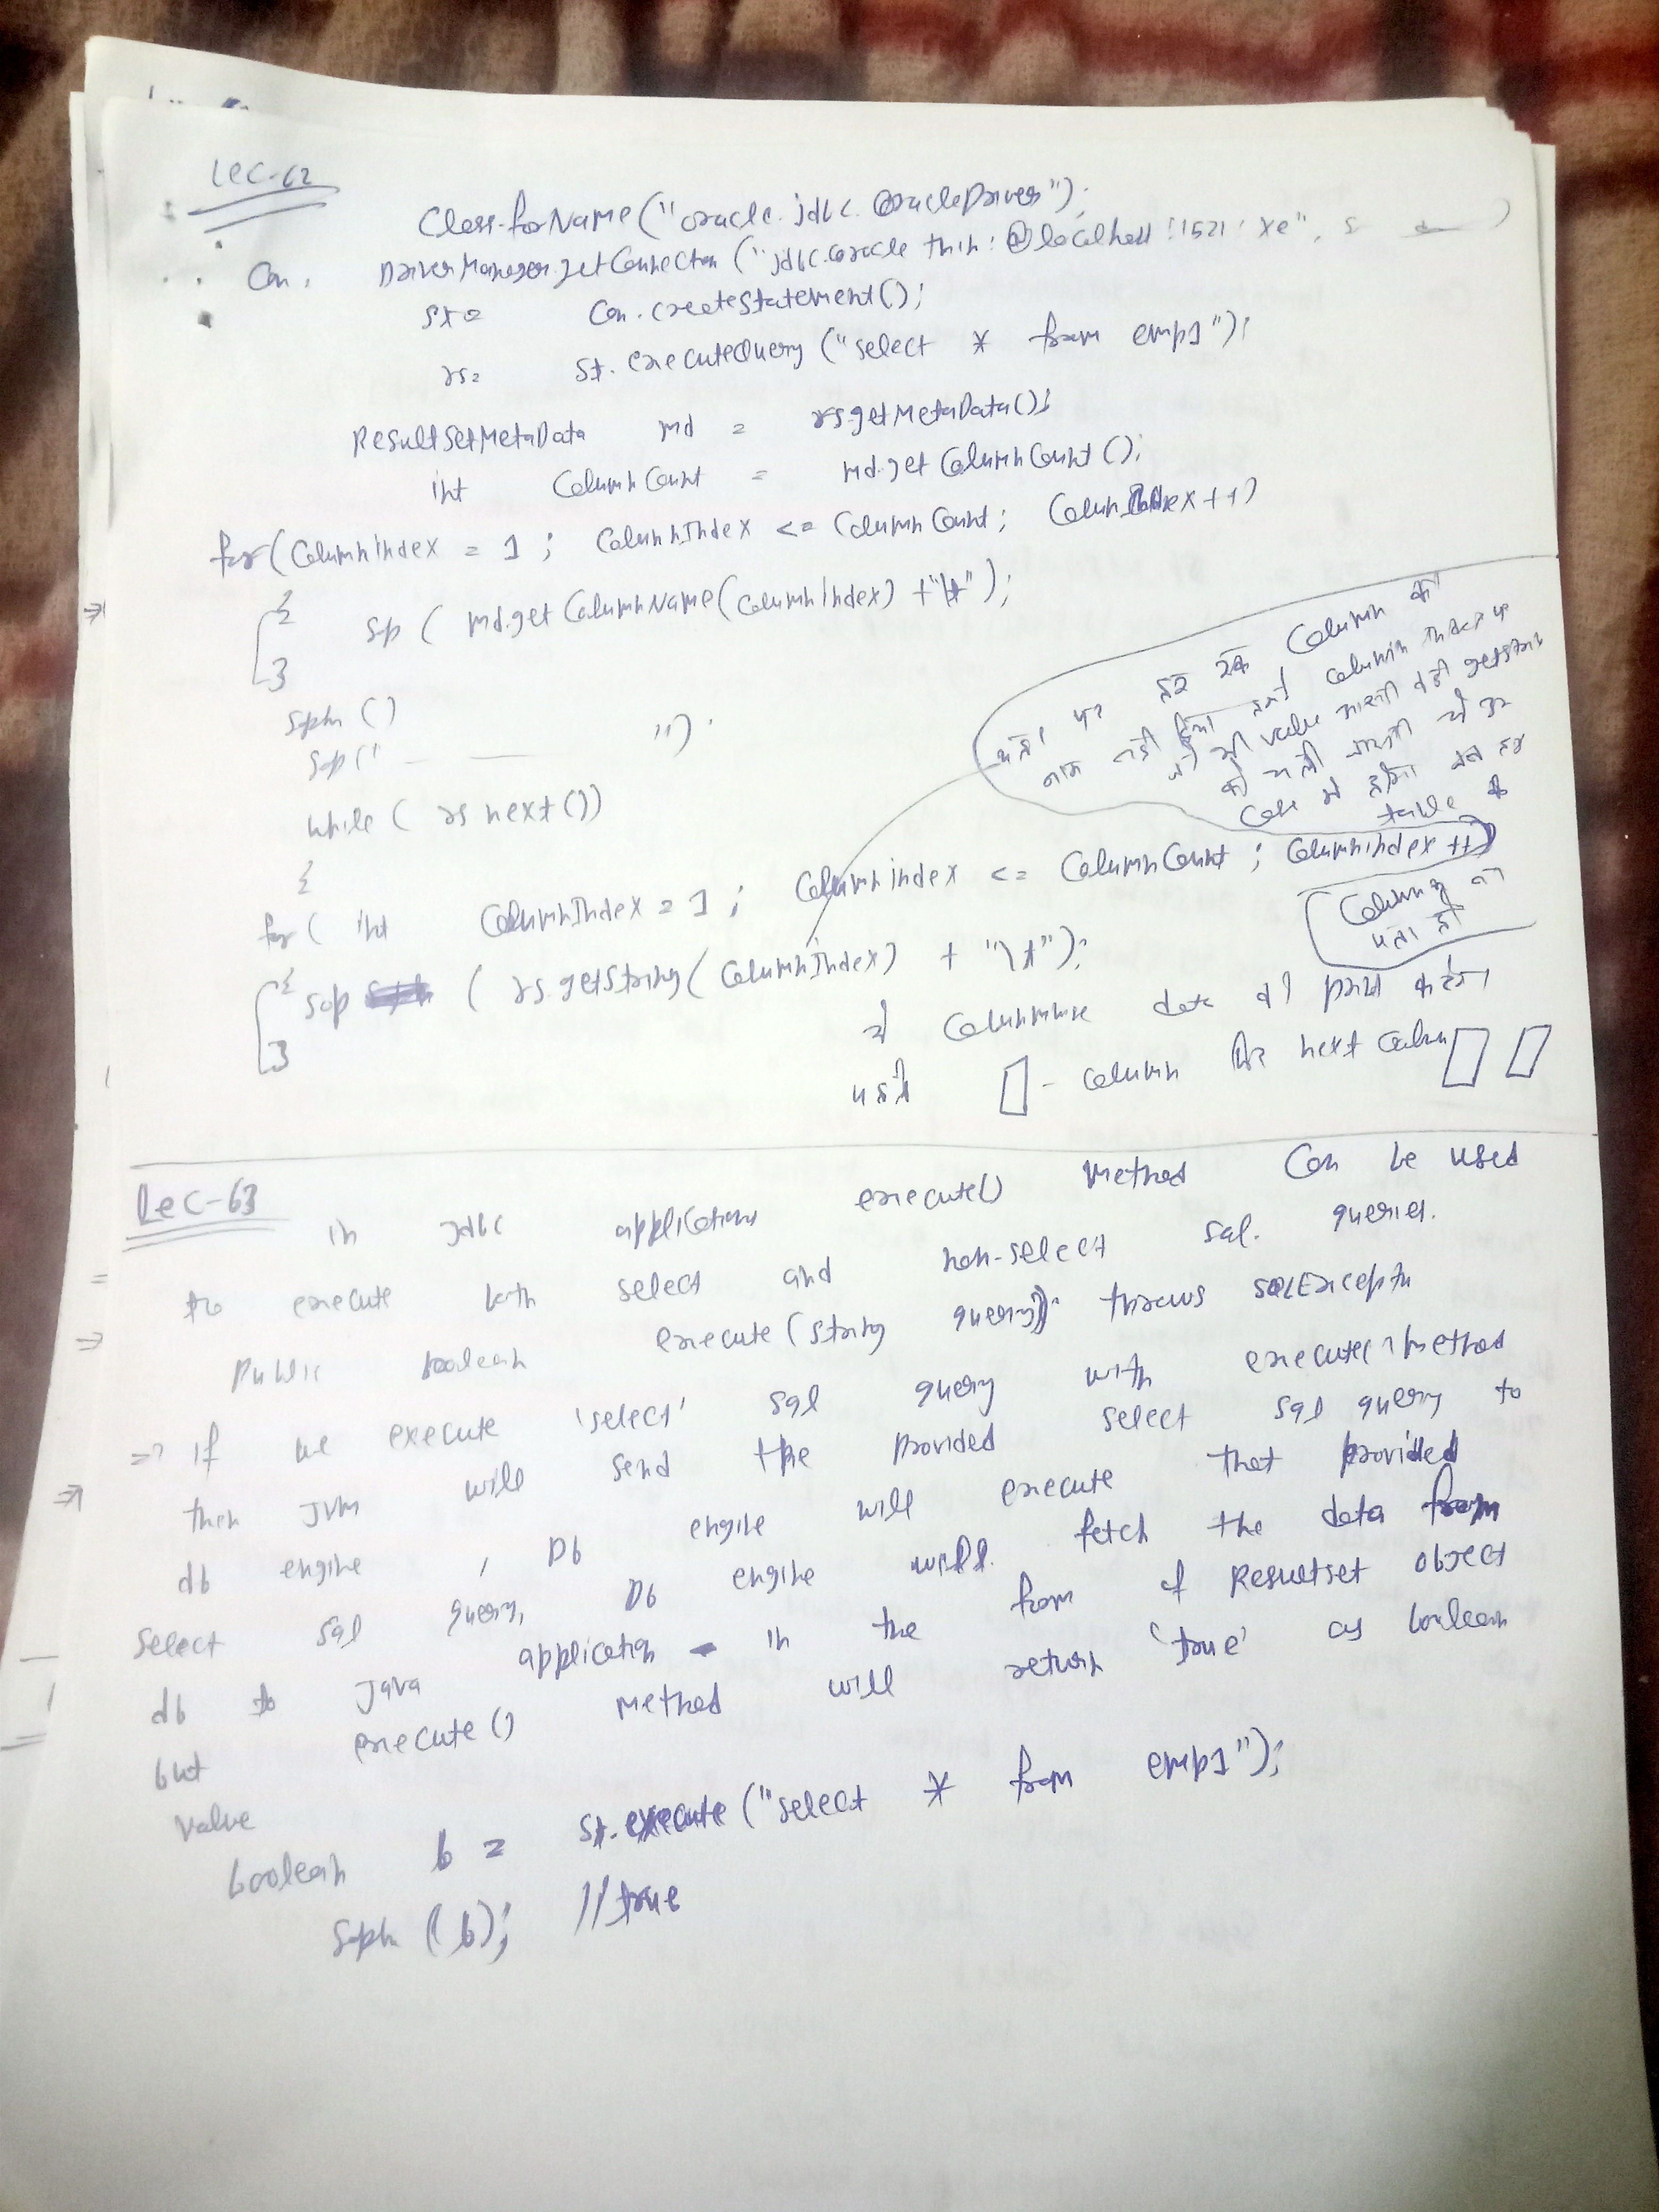 Lec-62
Class.forName("oracle.jdbc.OracleDriver");
Con. DriverManager.getConnection ("jdbc:oracle thin:@localhost:1521:xe", s )
st = Con.createStatement();
rs = st.executeQuery ("select * from emp1");
ResultSetMetaData md = rs.getMetaData();
int ColumnCount = md.get ColumnCount ();
for (ColumnIndex = 1 ; ColumnIndex <= ColumnCount ; ColumnIndex ++)
{ Sp ( md.get ColumnName(ColumnIndex) + "\t" );
}
Sopln ()
Sop (" — — ").
while ( rs next ())
{
for ( int ColumnIndex = 1 ; Columnindex <= ColumnCount ; Columnindex ++)
{ Sop ( rs.getString( ColumnIndex) + "\t");
}
यहाँ पर हम Column का
नाम नहीं column index
value getString
table के
Column का
पता हो
ये Columnwise data को print करेगा
पहले - column फिर next Column
Lec-63
in Jdbc applications execute() Method Can be used
to execute both select and non-select sql. queries.
Public boolean execute (String query) throws SQLExceptn
=> if we execute 'select' sql query with execute() method
then JVM will send the provided select sql query to
db engine , Db engine will execute that provided
select sql query, Db engine will fetch the data from
db to Java application in the from of Resultset object
but execute () Method will return 'true' as boolean
value
boolean b = st.execute ("select * from emp1");
Sopln (b); //true